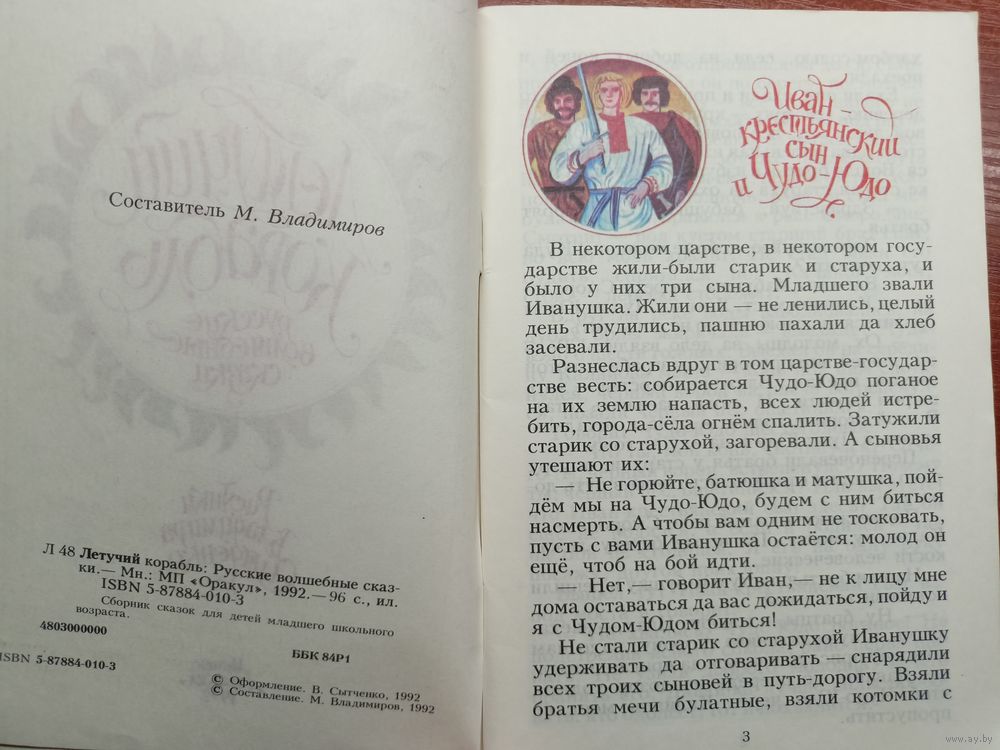 Составитель М. Владимиров
Л 48 Летучий корабль: Русские волшебные сказ-
ки.— Мн.: МП «Оракул», 1992.— 96 с., ил.
ISBN 5-87884-010-3
Сборник сказок для детей младшего школьного
возраста.
4803000000
ББК 84Р1
ISBN 5-87884-010-3
© Оформление. В. Сытченко, 1992
© Составление. М. Владимиров, 1992
Иван -
крестьянский
сын
и Чудо-Юдо
В некотором царстве, в некотором госу-
дарстве жили-были старик и старуха, и
было у них три сына. Младшего звали
Иванушка. Жили они — не ленились, целый
день трудились, пашню пахали да хлеб
засевали.
Разнеслась вдруг в том царстве-государ-
стве весть: собирается Чудо-Юдо поганое
на их землю напасть, всех людей истре-
бить, города-сёла огнём спалить. Затужили
старик со старухой, загоревали. А сыновья
утешают их:
— Не горюйте, батюшка и матушка, пой-
дём мы на Чудо-Юдо, будем с ним биться
насмерть. А чтобы вам одним не тосковать,
пусть с вами Иванушка остаётся: молод он
ещё, чтоб на бой идти.
— Нет,— говорит Иван,— не к лицу мне
дома оставаться да вас дожидаться, пойду и
я с Чудом-Юдом биться!
Не стали старик со старухой Иванушку
удерживать да отговаривать — снарядили
всех троих сыновей в путь-дорогу. Взяли
братья мечи булатные, взяли котомки с
3
www.ay.by